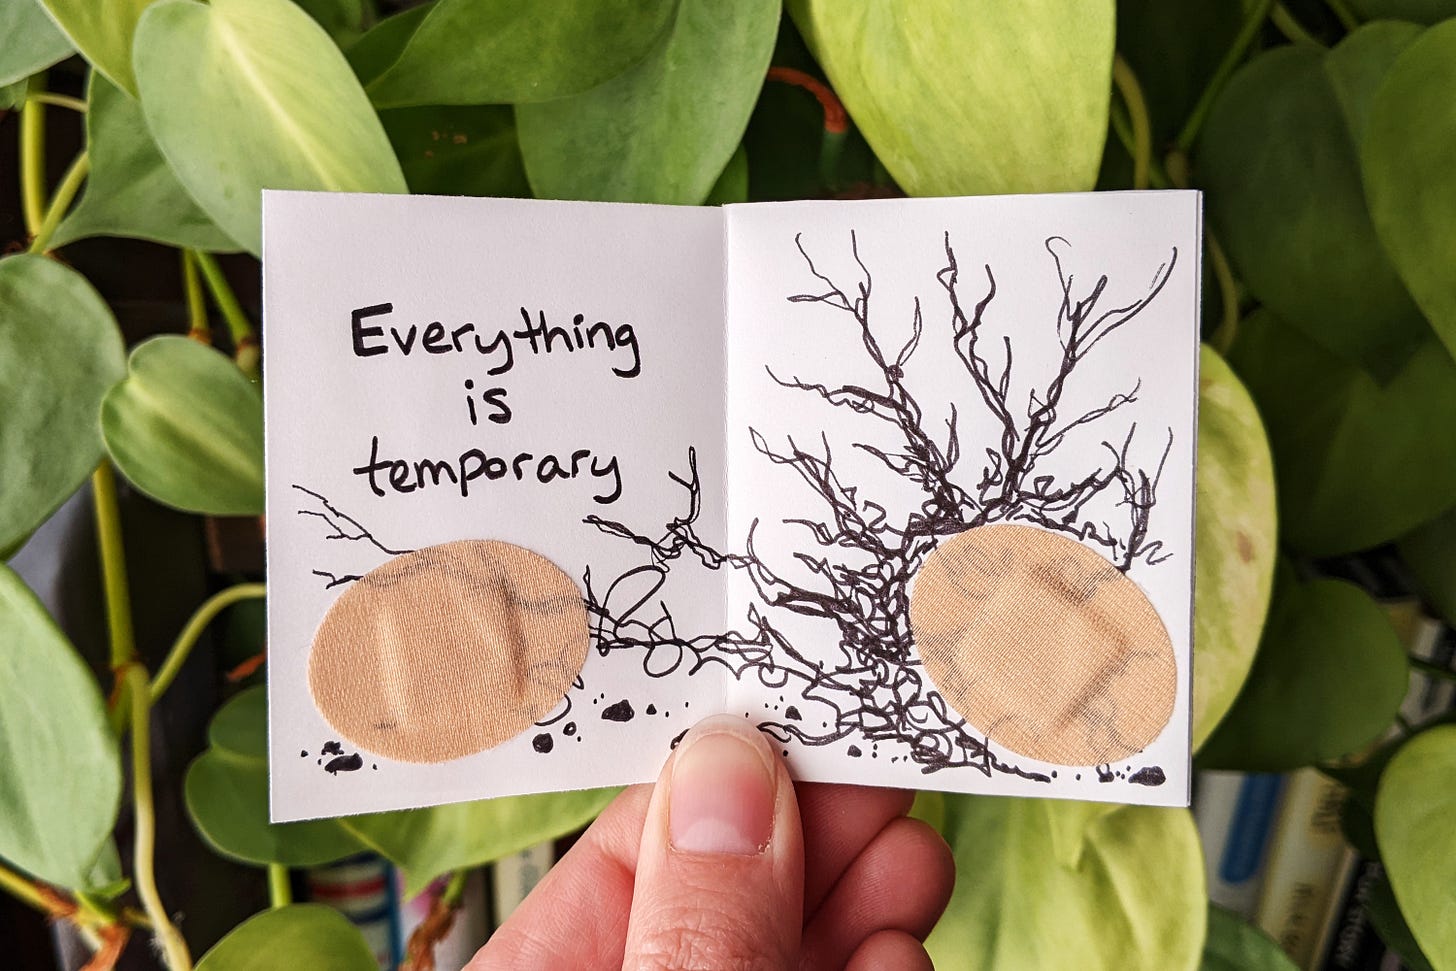 Everything
is
temporary